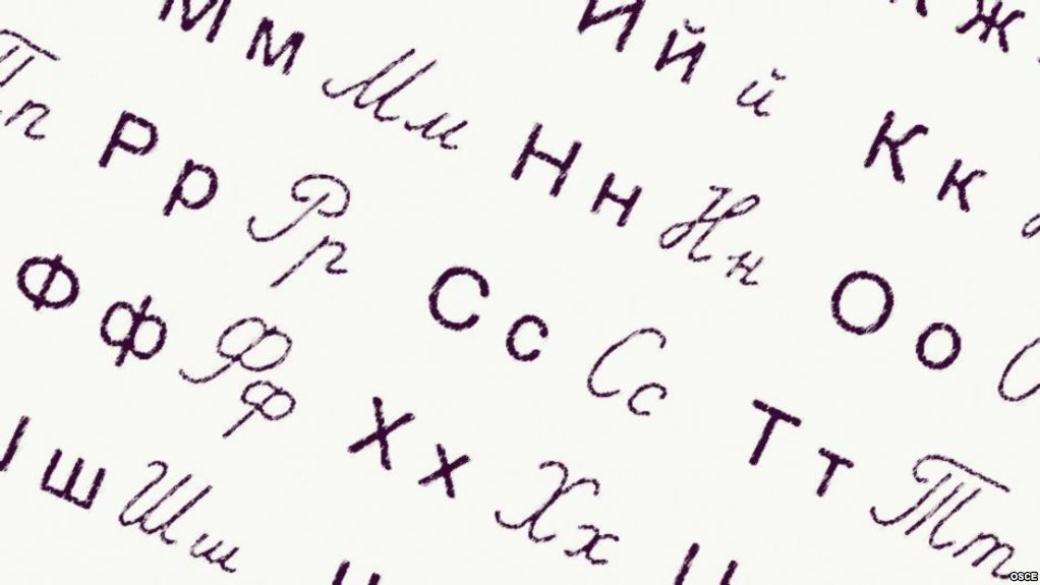 М м Мм
Й й й
ж
п Р р Рр
Н н Нн
К к
Ф ф Фф
С с Сс
О о
ш Шш
Х х Хх
Т т Тт
OSCE